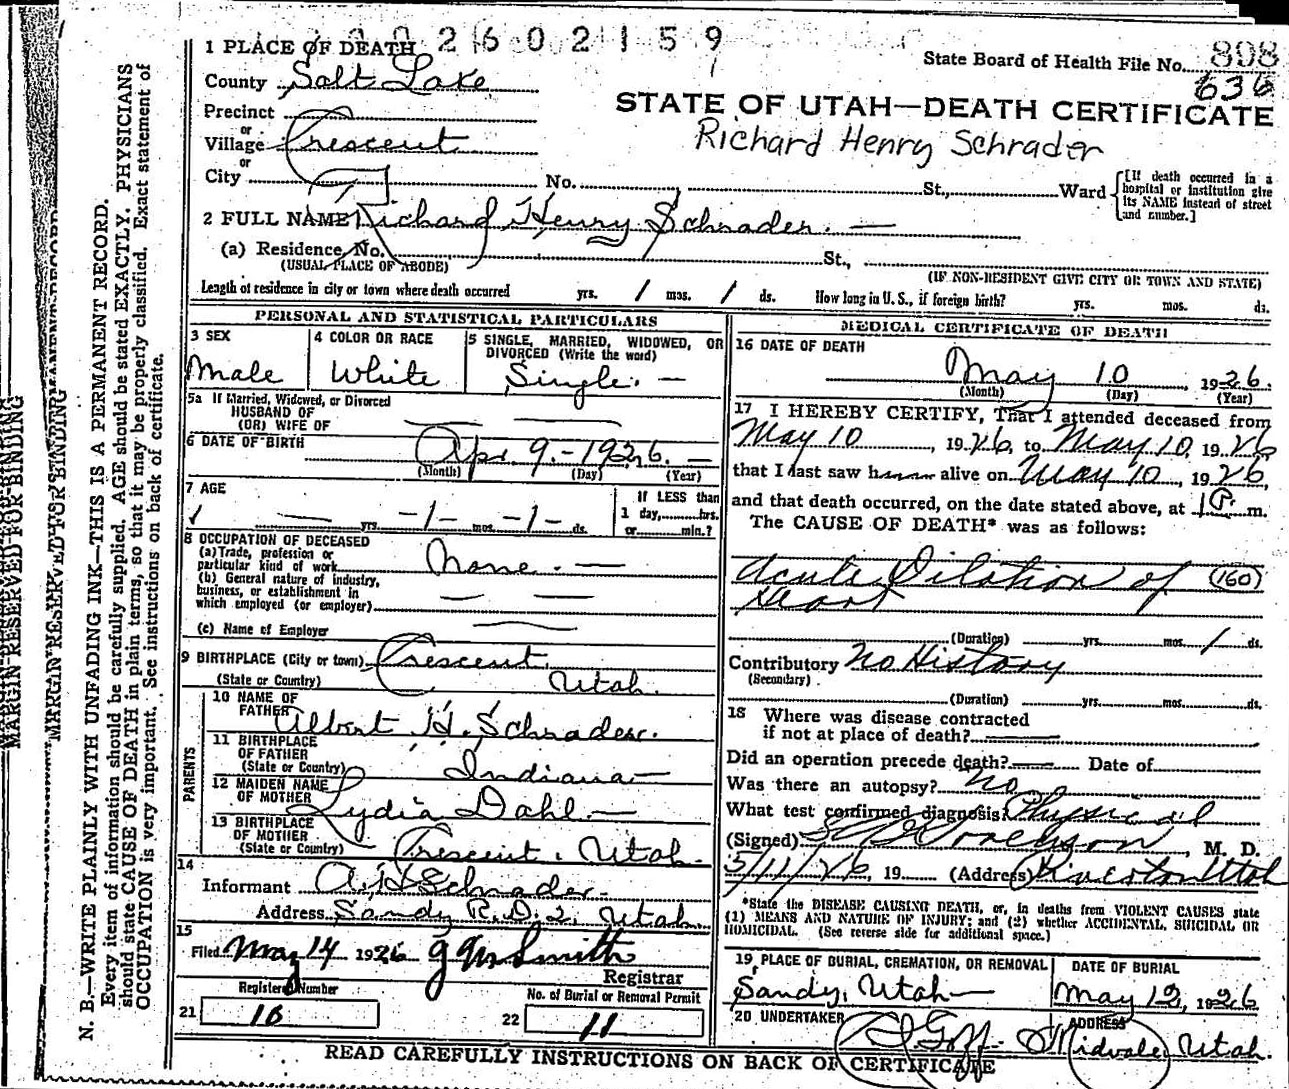 1 PLACE OF DEATH 2602159
State Board of Health File No. 808
636
County Salt Lake
STATE OF UTAH—DEATH CERTIFICATE
Precinct
or
Richard Henry Schrader
Village Crescent
or
City No. St., Ward [If death occurred in a hospital or institution give its NAME instead of street and number.]
2 FULL NAME Richard Henry Schrader. —
(a) Residence, No. St.,
(USUAL PLACE OF ABODE) (IF NON-RESIDENT GIVE CITY OR TOWN AND STATE)
Length of residence in city or town where death occurred yrs. 1 mos. 1 ds. How long in U. S., if foreign birth? yrs. mos. ds.
PERSONAL AND STATISTICAL PARTICULARS
3 SEX
Male
4 COLOR OR RACE
White
5 SINGLE, MARRIED, WIDOWED, OR
DIVORCED (Write the word)
Single. —
5a If Married, Widowed, or Divorced
HUSBAND OF
(OR) WIFE OF
6 DATE OF BIRTH Apr. 9.-1926. —
(Month) (Day) (Year)
7 AGE
— yrs. -1- mos. -1- ds.
If LESS than
1 day,......hrs.
or......min.?
8 OCCUPATION OF DECEASED
(a) Trade, profession or
particular kind of work None. —
(b) General nature of industry,
business, or establishment in
which employed (or employer)
(c) Name of Employer
9 BIRTHPLACE (City or town) Crescent
(State or Country) Utah.
PARENTS
10 NAME OF
FATHER Albert H. Schrader.
11 BIRTHPLACE
OF FATHER
(State or Country) Indiana —
12 MAIDEN NAME
OF MOTHER Lydia Dahl —
13 BIRTHPLACE
OF MOTHER
(State or Country) Crescent, Utah.
14
Informant A. H. Schrader.
Address Sandy R.D.2, Utah.
15
Filed May 14 1926
Smith
Registrar
Registered Number
21 10
No. of Burial or Removal Permit
22 11
MEDICAL CERTIFICATE OF DEATH
16 DATE OF DEATH
May 10, 1926.
(Month) (Day) (Year)
17 I HEREBY CERTIFY, That I attended deceased from
May 10, 1926, to May 10, 1926
that I last saw him alive on May 10, 1926,
and that death occurred, on the date stated above, at 1 P. m.
The CAUSE OF DEATH* was as follows:
Acute Dilation of (160)
Heart
(Duration) yrs. mos. 1 ds.
Contributory No History
(Secondary)
(Duration) yrs. mos. ds.
18 Where was disease contracted
if not at place of death?
Did an operation precede death? Date of
Was there an autopsy? No
What test confirmed diagnosis? Physical
(Signed) , M. D.
5/11/26, 19 (Address) Riverton Utah
*State the DISEASE CAUSING DEATH, or, in deaths from VIOLENT CAUSES state
(1) MEANS AND NATURE OF INJURY; and (2) whether ACCIDENTAL, SUICIDAL OR
HOMICIDAL. (See reverse side for additional space.)
19 PLACE OF BURIAL, CREMATION, OR REMOVAL
Sandy, Utah —
DATE OF BURIAL
May 12, 1926
20 UNDERTAKER
Goff.
ADDRESS
Midvale, Utah.
READ CAREFULLY INSTRUCTIONS ON BACK OF CERTIFICATE
MARGIN RESERVED FOR BINDING
MARGIN RESERVED FOR BINDING
N. B.—WRITE PLAINLY WITH UNFADING INK—THIS IS A PERMANENT RECORD.
Every item of information should be carefully supplied. AGE should be stated EXACTLY. PHYSICIANS
should state CAUSE OF DEATH in plain terms, so that it may be properly classified. Exact statement of
OCCUPATION is very important. See instructions on back of certificate.